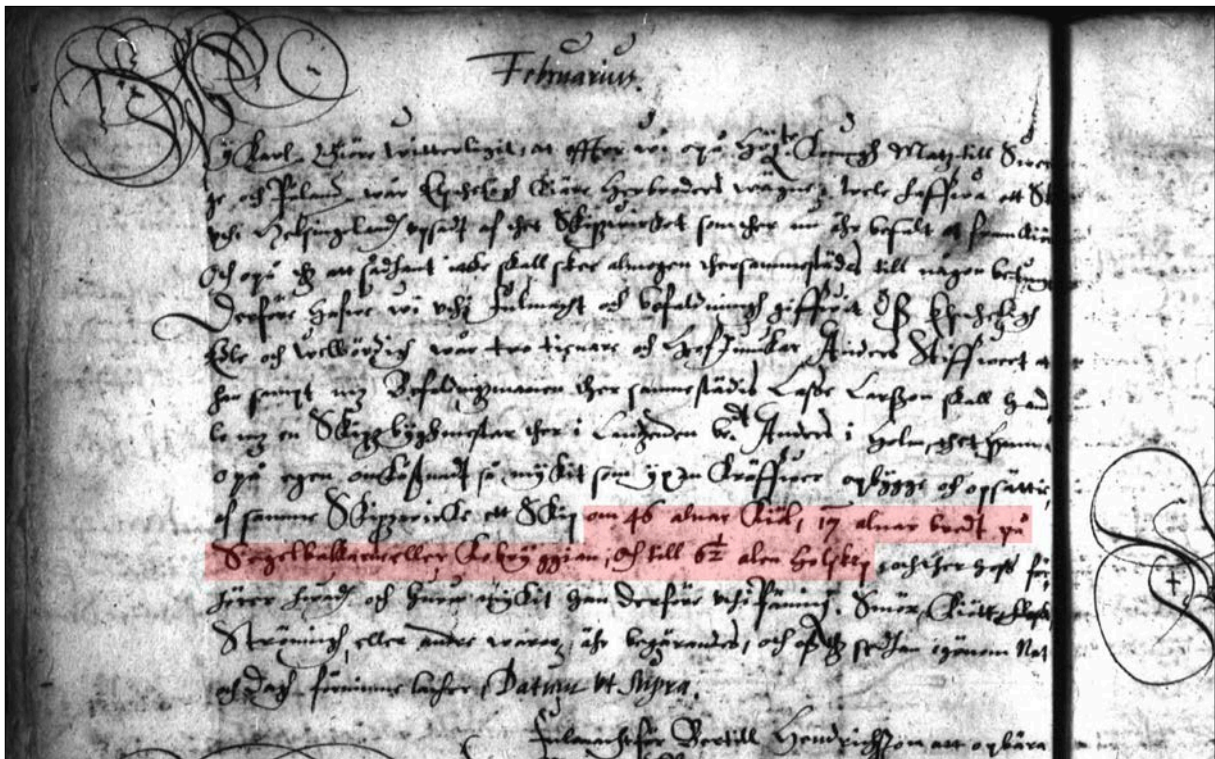 Februarius.
Wij Karl göre witterligit, at effter wi opå Högb:te Konungh Matz till Swer
ge och Påland wår Elskeligh Käre Herbroders wägne, wele haffwa ett
uthi Helsingeland upsatt af thet Skipzwircket som ther nu ähr befalt at
Och opå thz att sådhant icke skall skee almogen thersammestädes till någon
Derföre hafwe wi uthi fulmacht och befaldningh giffwit Oss Elskeligh
Edle och welbördigh wår tro tienare och Hofjunkar Anders Stiffweet at
han sampt mz Befaldningzmannen ther sammestädes Lasse Larsson skall hand
le mz en Skipzbyghmestar ther i Landzenden be:dt Anders i Holm, thet han
opå egen omkostnadt så mykit som yxen kräffwer opbygge och opsättie,
af samme Skipzwircke ett Skip om 46 alnar Kiöl, 17 alnar bredt på
Segelbalkarne eller Kobryggian, och till 6½ alen
hörer och huru mykit han derföre uthi Päning, Smör,
Strömingh, eller andre warer, ähr begärandes, och oss thz sedhan igönom Nat
och Dagh förnimme lather, Datum ut supra.
Fulmacht för Bertill Hendrichsson att opbära